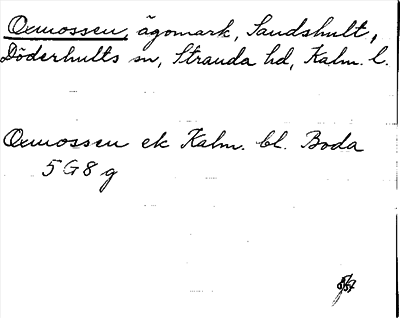 Oxmossen, ägomark, Sandshult,
Döderhults sn, Stranda hd, Kalm. l.
Oxmossen ek Kalm. bl. Boda
5 G 8 g